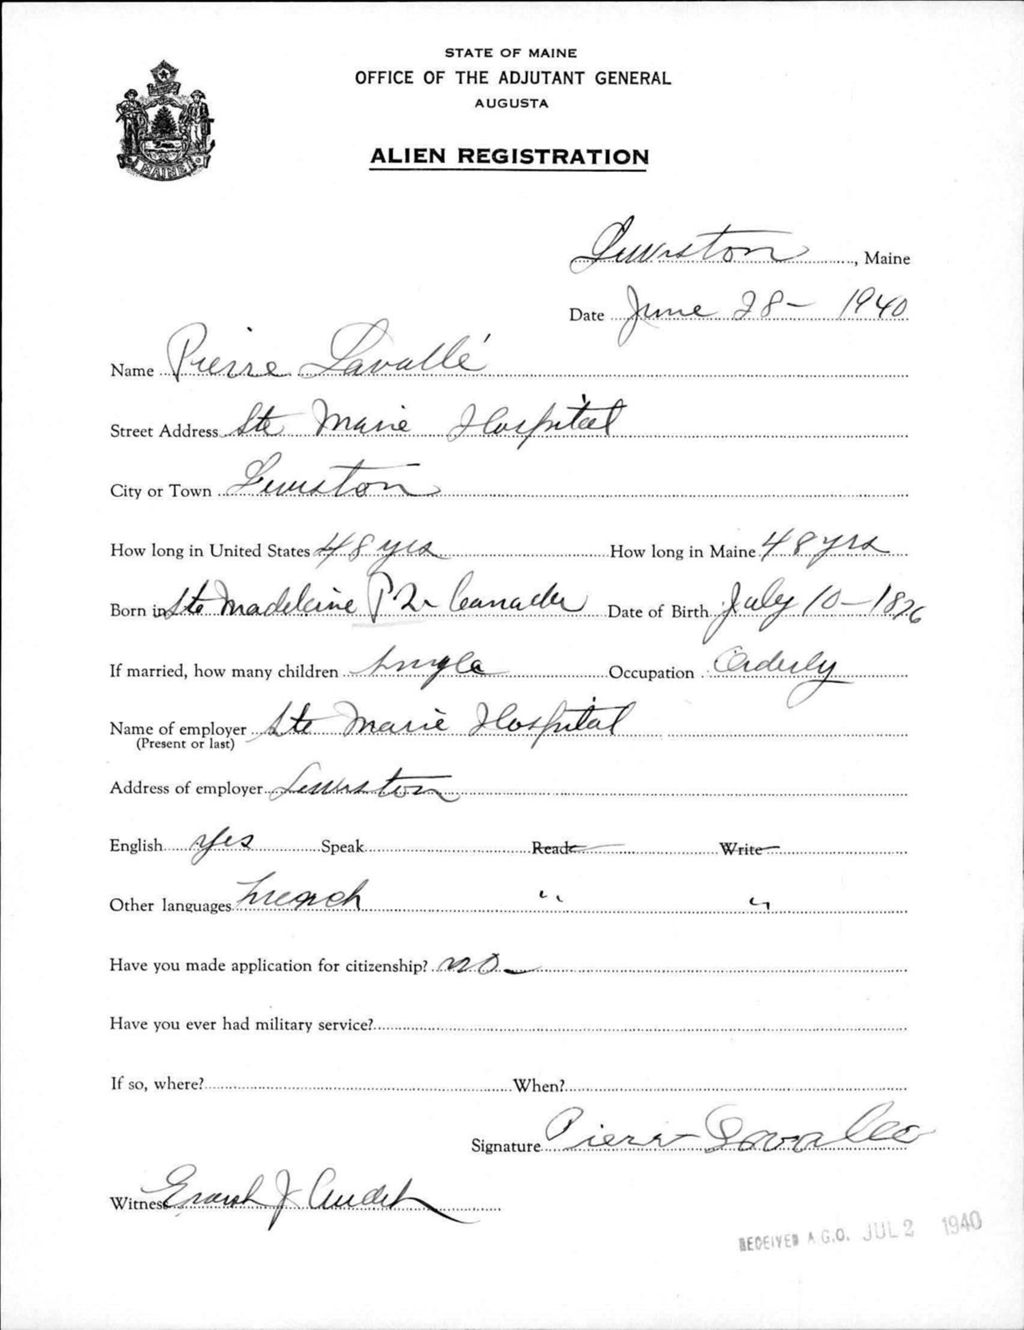 STATE OF MAINE
OFFICE OF THE ADJUTANT GENERAL
AUGUSTA
ALIEN REGISTRATION
MAINE
Lewiston, Maine
Date June 28 - 1940
Name Pierre Lavallé
Street Address Ste Marie Hospital
City or Town Lewiston
How long in United States 48 yrs How long in Maine 48 yrs
Born in Ste Madeleine P 2 Canada Date of Birth July 10 - 1876
If married, how many children Single Occupation Orderly
Name of employer Ste Marie Hospital
(Present or last)
Address of employer Lewiston
English Yes Speak Read Write
Other languages French " "
Have you made application for citizenship? no
Have you ever had military service?
If so, where? When?
Signature Pierre Lavallee
Witness J Audet
RECEIVED A.G.O. JUL 2 1940